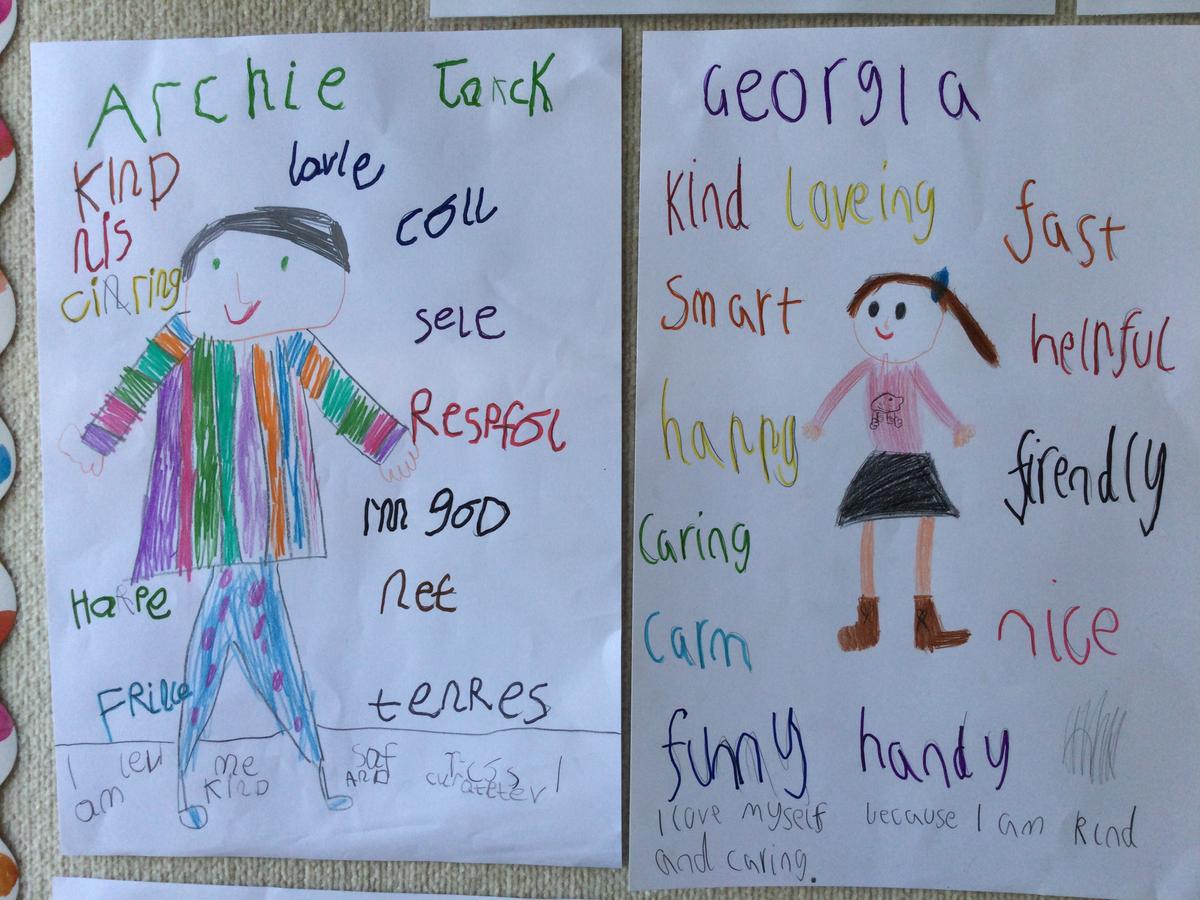 Archie Tarck
KIND
lovle
NIS
coll
ciRring
sele
Respfol
I'm goD
HaPPe
net
FRine
tenres
I lev me
am KIND AND
Georgia
Kind loveing
fast
Smart
helpful
happy
firendly
Caring
Carm
nice
funny handy
I love myself because I am kind
and caring.